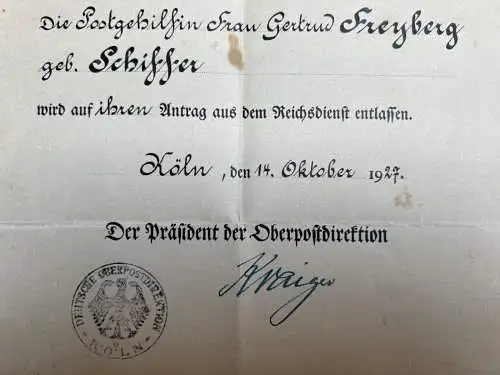 Die Postgehilfin Frau Gertrud Freyberg
geb. Schiffer
wird auf ihren Antrag aus dem Reichsdienst entlassen.
Köln, den 14. Oktober 1927.
Der Präsident der Oberpostdirektion
Kraiger
DEUTSCHE OBERPOSTDIREKTION
KÖLN